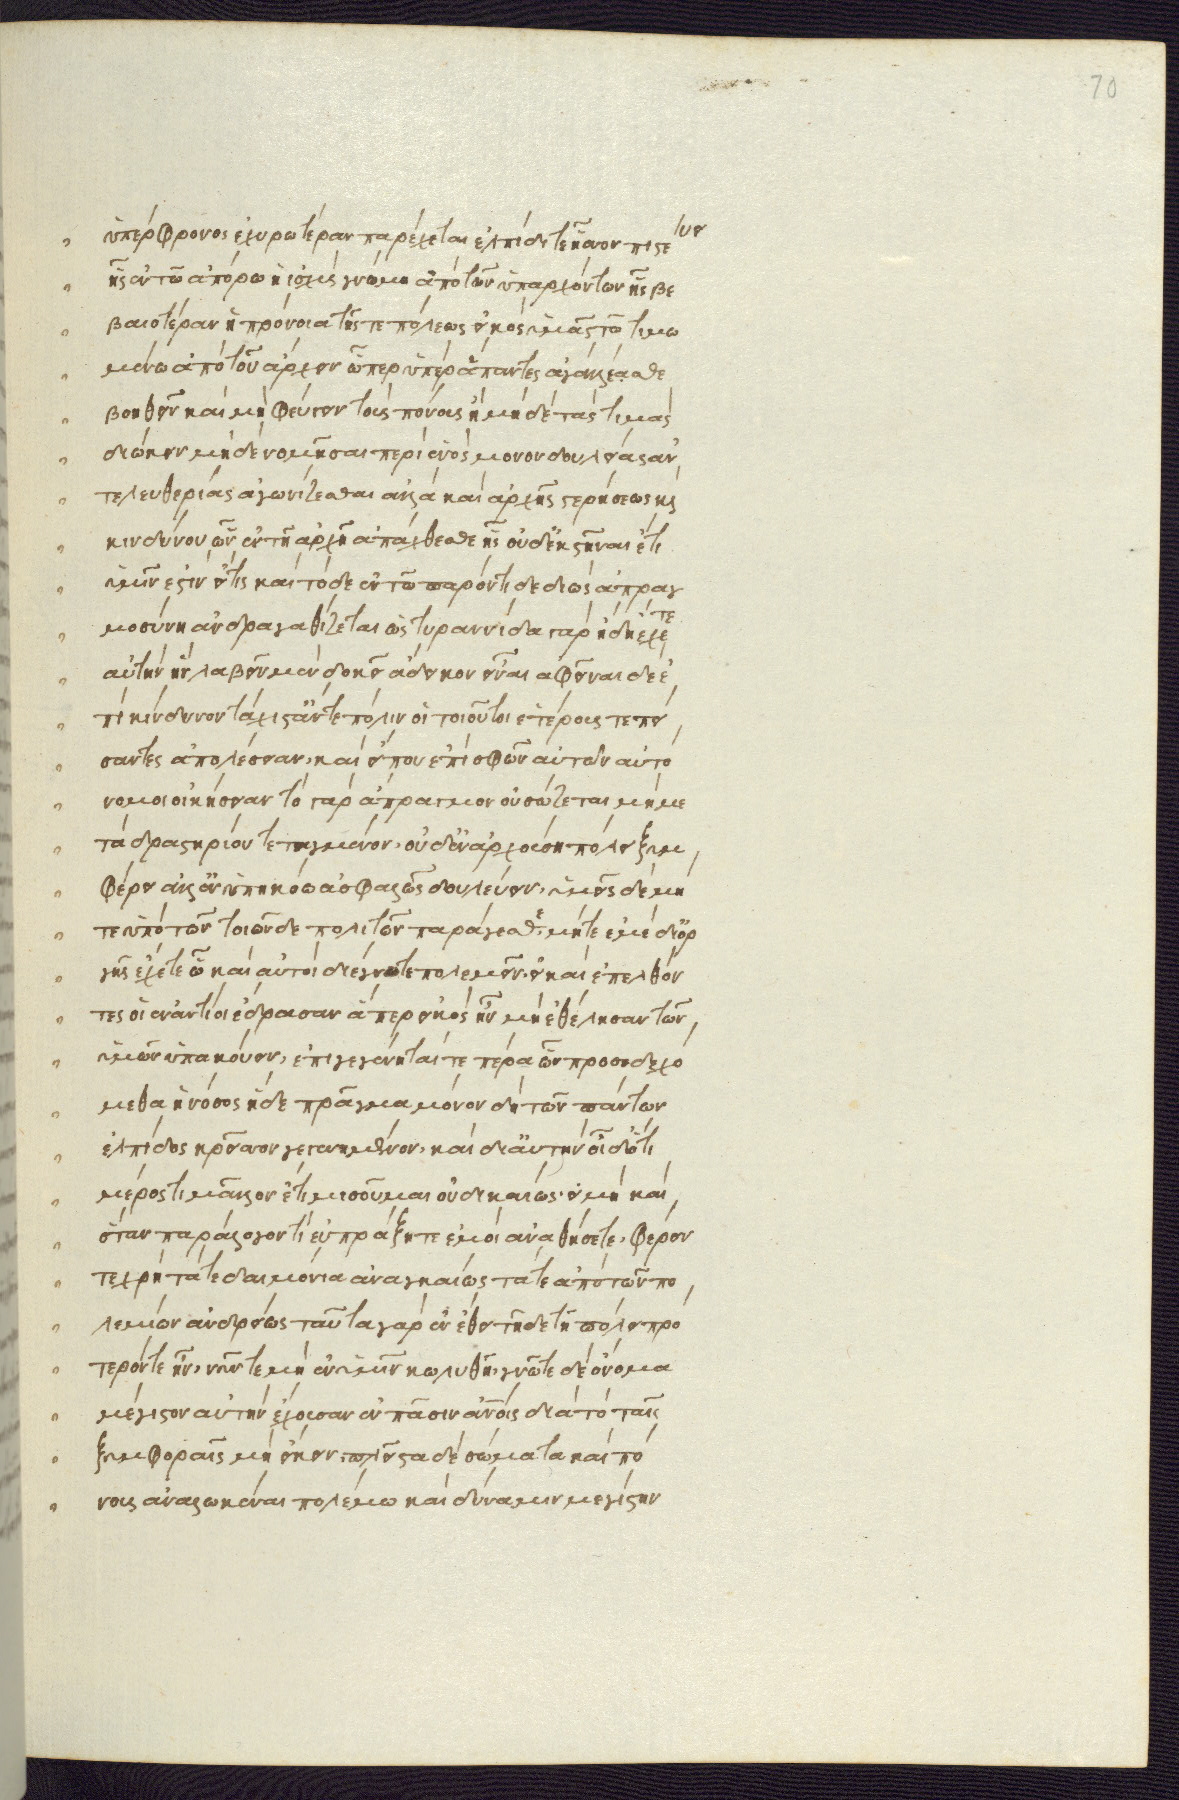 70
ὑπέρφρονος ἐχυρωτέραν παρέχεται ἐλπίδι τε ἧσσον πιστεύει
ἧς ἐν τῶ ἀπόρω ἡ ἰσχὺς γνώμη ἀπὸ τῶν ὑπαρχόντων ἧς βε
βαιοτέραν ἡ πρόνοια τῆς τε πόλεως εἰκὸς ὑμᾶς τῶ τιμω
μένω ἀπὸ τοῦ ἄρχειν ὧπερ ὑπὲρ ἅπαντες ἀγάλλεσθε
βοηθεῖν καὶ μὴ φεύγειν τοὺς πόνους ἢ μηδὲ τὰς τιμὰς
διώκειν μηδὲ νομίσαι περὶ ἑνὸς μόνου δουλείας ἀν
τ' ἐλευθερίας ἀγωνίζεσθαι ἀλλὰ καὶ ἀρχῆς στερήσεως καὶ
κινδύνου ὧν ἐν τῆ ἀρχῆ ἀπήχθεσθε ἧς οὐδ' ἐκστῆναι ἔτι
ὑμῖν ἐστὶν εἴ τις καὶ τόδε ἐν τῶ παρόντι δεδιὼς ἀπραγ
μοσύνη ἀνδραγαθίζεται ὡς τυραννίδα γὰρ ἤδη ἔχετε
αὐτὴν ἣν λαβεῖν μὲν δοκεῖ ἄδικον εἶναι ἀφεῖναι δὲ ἐ
πικίνδυνον τάχιστ' ἄν τε πόλιν οἱ τοιοῦτοι ἑτέρους τε πεί
σαντες ἀπολέσειαν, καὶ εἴ που ἐπὶ σφῶν αὐτῶν αὐτό
νομοι οἰκήσειαν τὸ γὰρ ἄπραγμον οὐ σώζεται μὴ με
τὰ δραστηρίου τεταγμένον, οὐδ' ἐν ἀρχούση πόλει ξυμ
φέρει ἀλλ' ἐν ὑπηκόω ἀσφαλῶς δουλεύειν, ὑμεῖς δὲ μή
τε ὑπὸ τῶν τοιῶνδε πολιτῶν παράγεσθε, μήτε ἐμὲ δι' ὀρ
γῆς ἔχετε ὧ καὶ αὐτοὶ διέγνωτε πολεμεῖν, εἰ καὶ ἐπελθόν
τες οἱ ἐναντίοι ἔδρασαν ἅπερ εἰκὸς ἦν μὴ ἐθελησάντων
ὑμῶν ὑπακούειν, ἐπιγεγένηταί τε πέρα ὧν προσεδεχό
μεθα ἡ νόσος ἥδε πρᾶγμα μόνον δὴ τῶν πάντων
ἐλπίδος κρεῖσσον γεγενημένον, καὶ δι' αὐτὴν οἶδ' ὅτι
μέρος τι μᾶλλον ἔτι μισοῦμαι οὐ δικαίως, εἰ μὴ καὶ
ὅταν παράλογόν τι εὖ πράξητε ἐμοὶ ἀναθήσετε, φέρειν
τε χρὴ τά τε δαιμόνια ἀναγκαίως τά τε ἀπὸ τῶν πο
λεμίων ἀνδρείως ταῦτα γὰρ ἐν ἔθει τῆδε τῆ πόλει πρό
τερόν τε ἦν, νῦν τε μὴ ἐν ὑμῖν κωλυθῆ, γνῶτε δὲ ὄνομα
μέγιστον αὐτὴν ἔχουσαν ἐν πᾶσιν ἀνοις διὰ τὸ ταῖς
ξυμφοραῖς μὴ εἴκειν, πλεῖστα δὲ σώματα καὶ πό
νους ἀναλωκέναι πολέμω καὶ δύναμιν μεγίστην